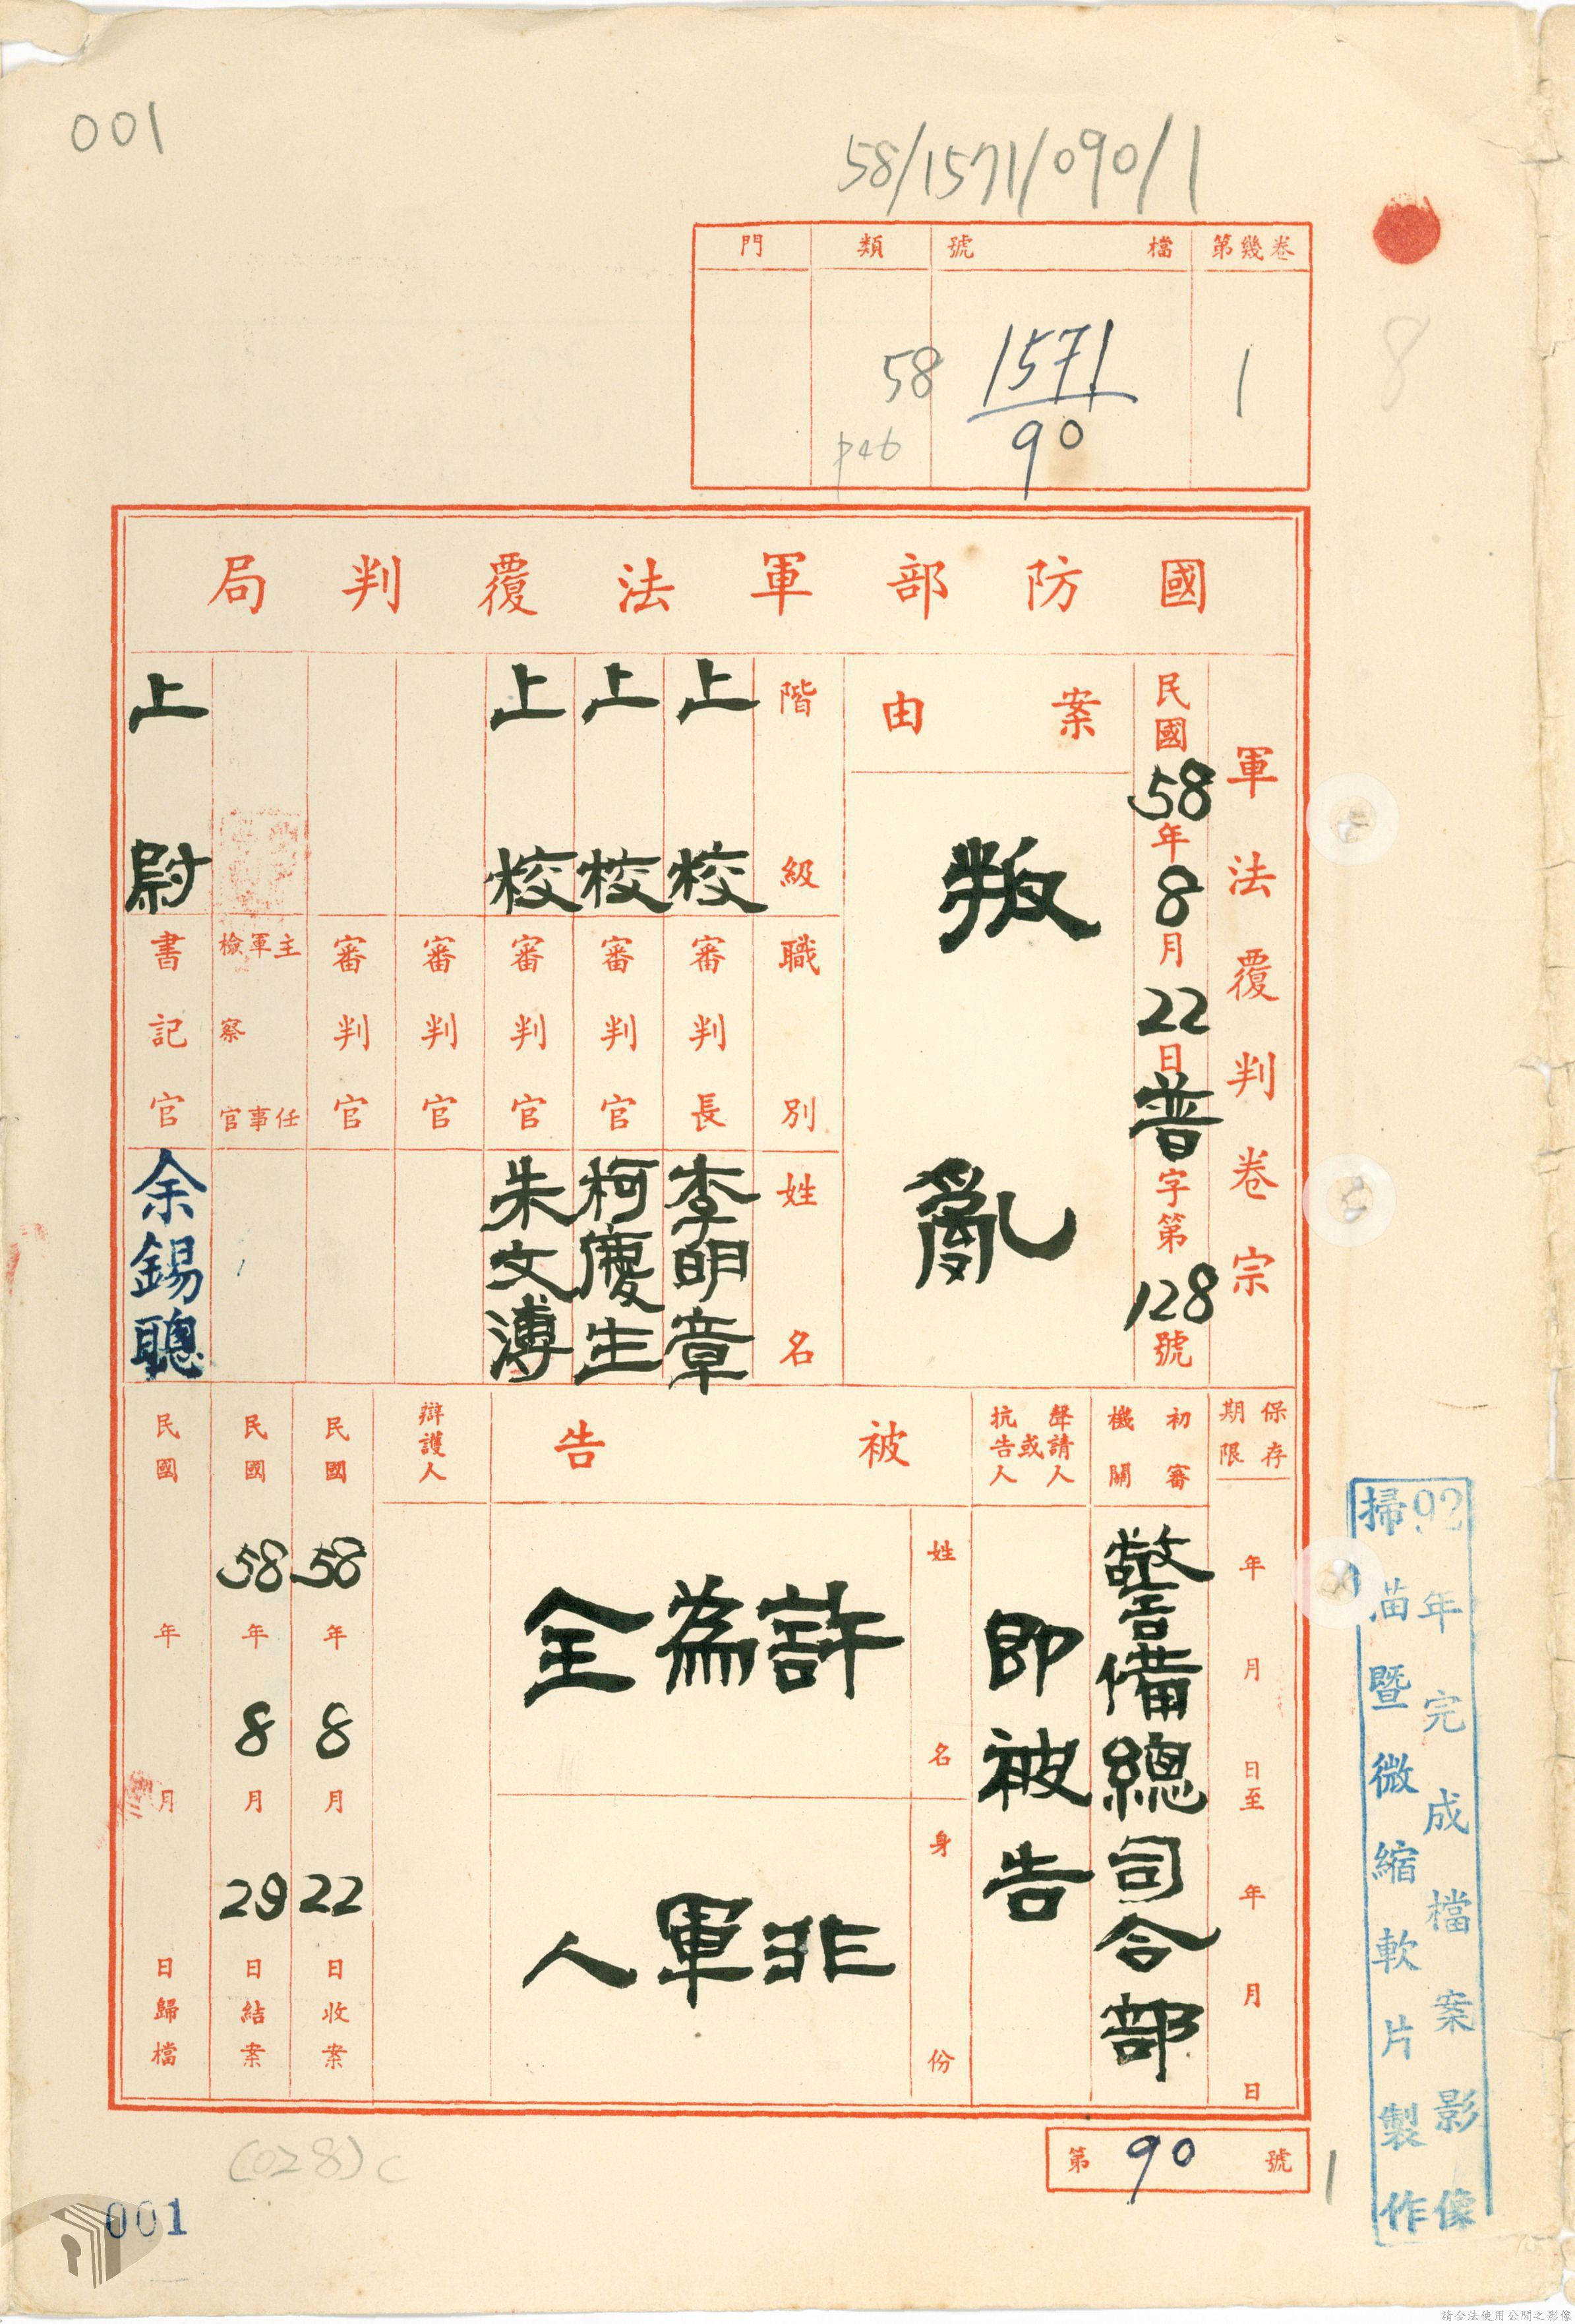 001
58/1571/090/1
第幾卷
1
檔號
1571
90
類
58
門
8
國防部軍法覆判局
軍法覆判卷宗
民國58年8月22日普字第128號
案由
叛亂
階級 職別 姓名
上校 審判長 李明章
上校 審判官 柯慶生
上校 審判官 朱文溥
審判官
審判官
主任軍事檢察官
上尉 書記官 余錫聰
保存期限
年月日至年月日
初審機關
警備總司令部
聲請人或抗告人
即被告
被告
姓名
許為全
身份
非軍人
辯護人
民國58年8月22日收案
民國58年8月29日結案
民國年月日歸檔
第90號
1
92年完成檔案影像
掃描暨微縮軟片製作
(028)c
001
請合法使用公開之影像